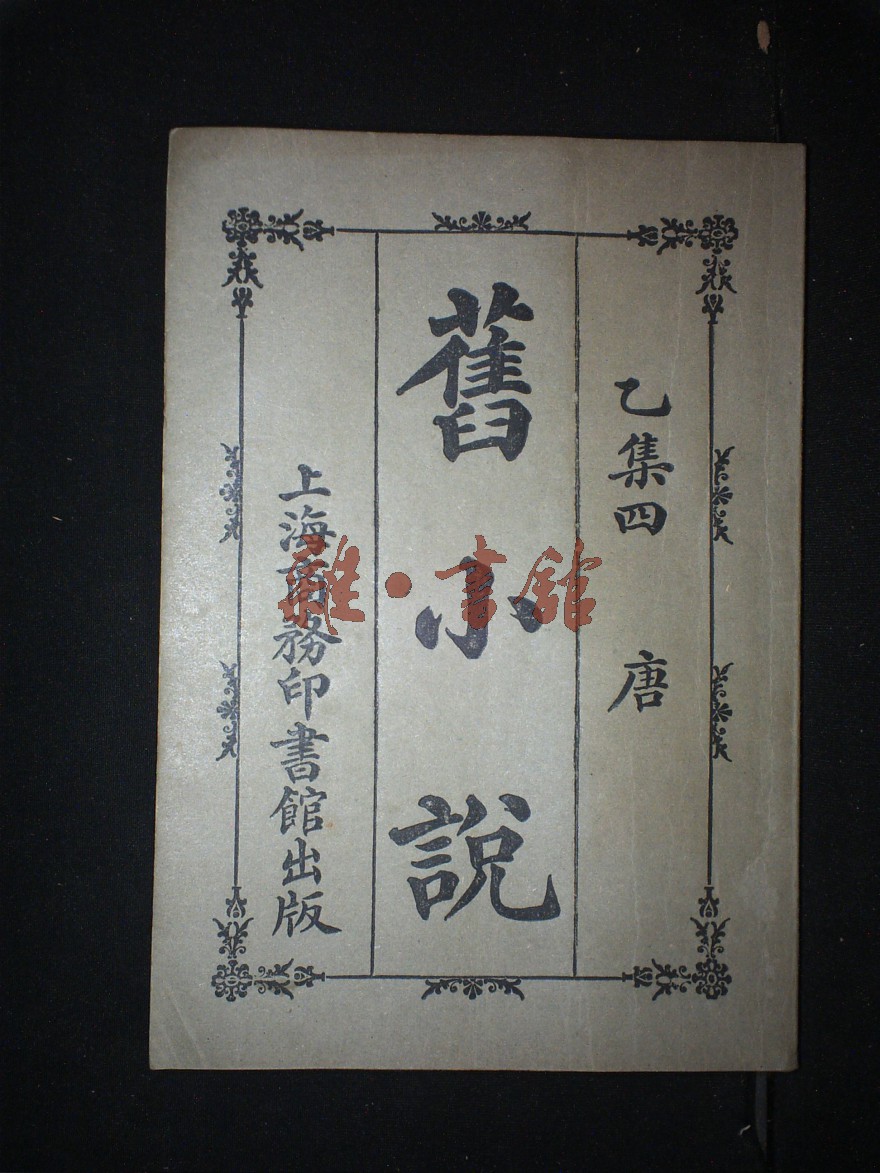 乙集四　唐
舊小說
上海商務印書館出版
雜·書館